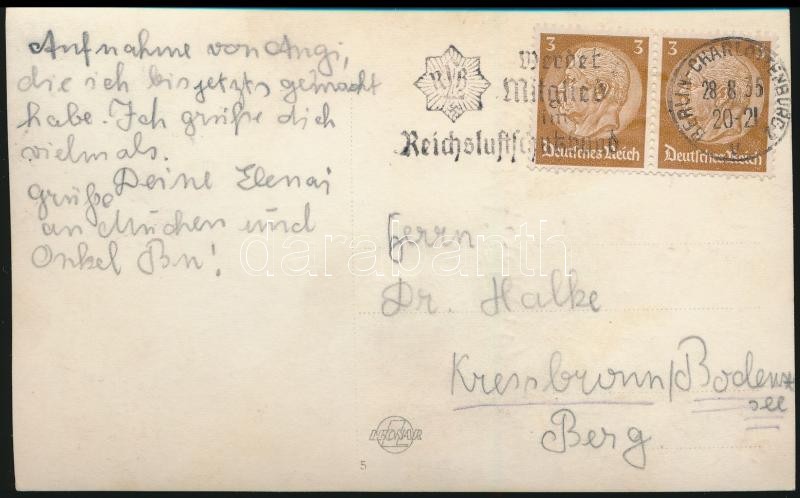 Aufnahme von Angi,
die ich bis jetzts gemacht
habe. Ich grüße dich
vielmals.
Deine
grüße
an und
Onkel
RLB
Werdet
Mitglied
im
Reichsluftschutzbund
3
3
Deutsches Reich
Deutsches Reich
BERLIN-CHARLOTTENBURG 2
28.8.35
20-21
Herrn
Dr. Halke
Kressbronn/Boden
see
Berg.
darabanth
LEONAR
5